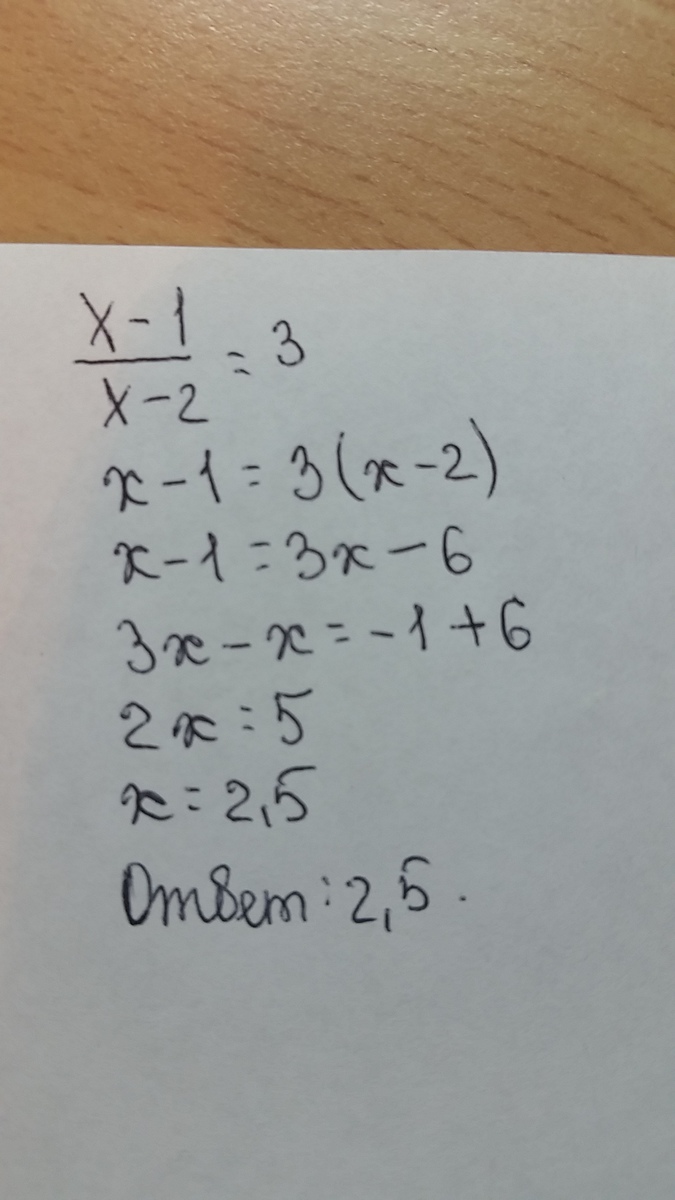 x-1
x-2 = 3
x-1 = 3(x-2)
x-1 = 3x-6
3x-x = -1+6
2x = 5
x = 2,5
Ответ: 2,5.